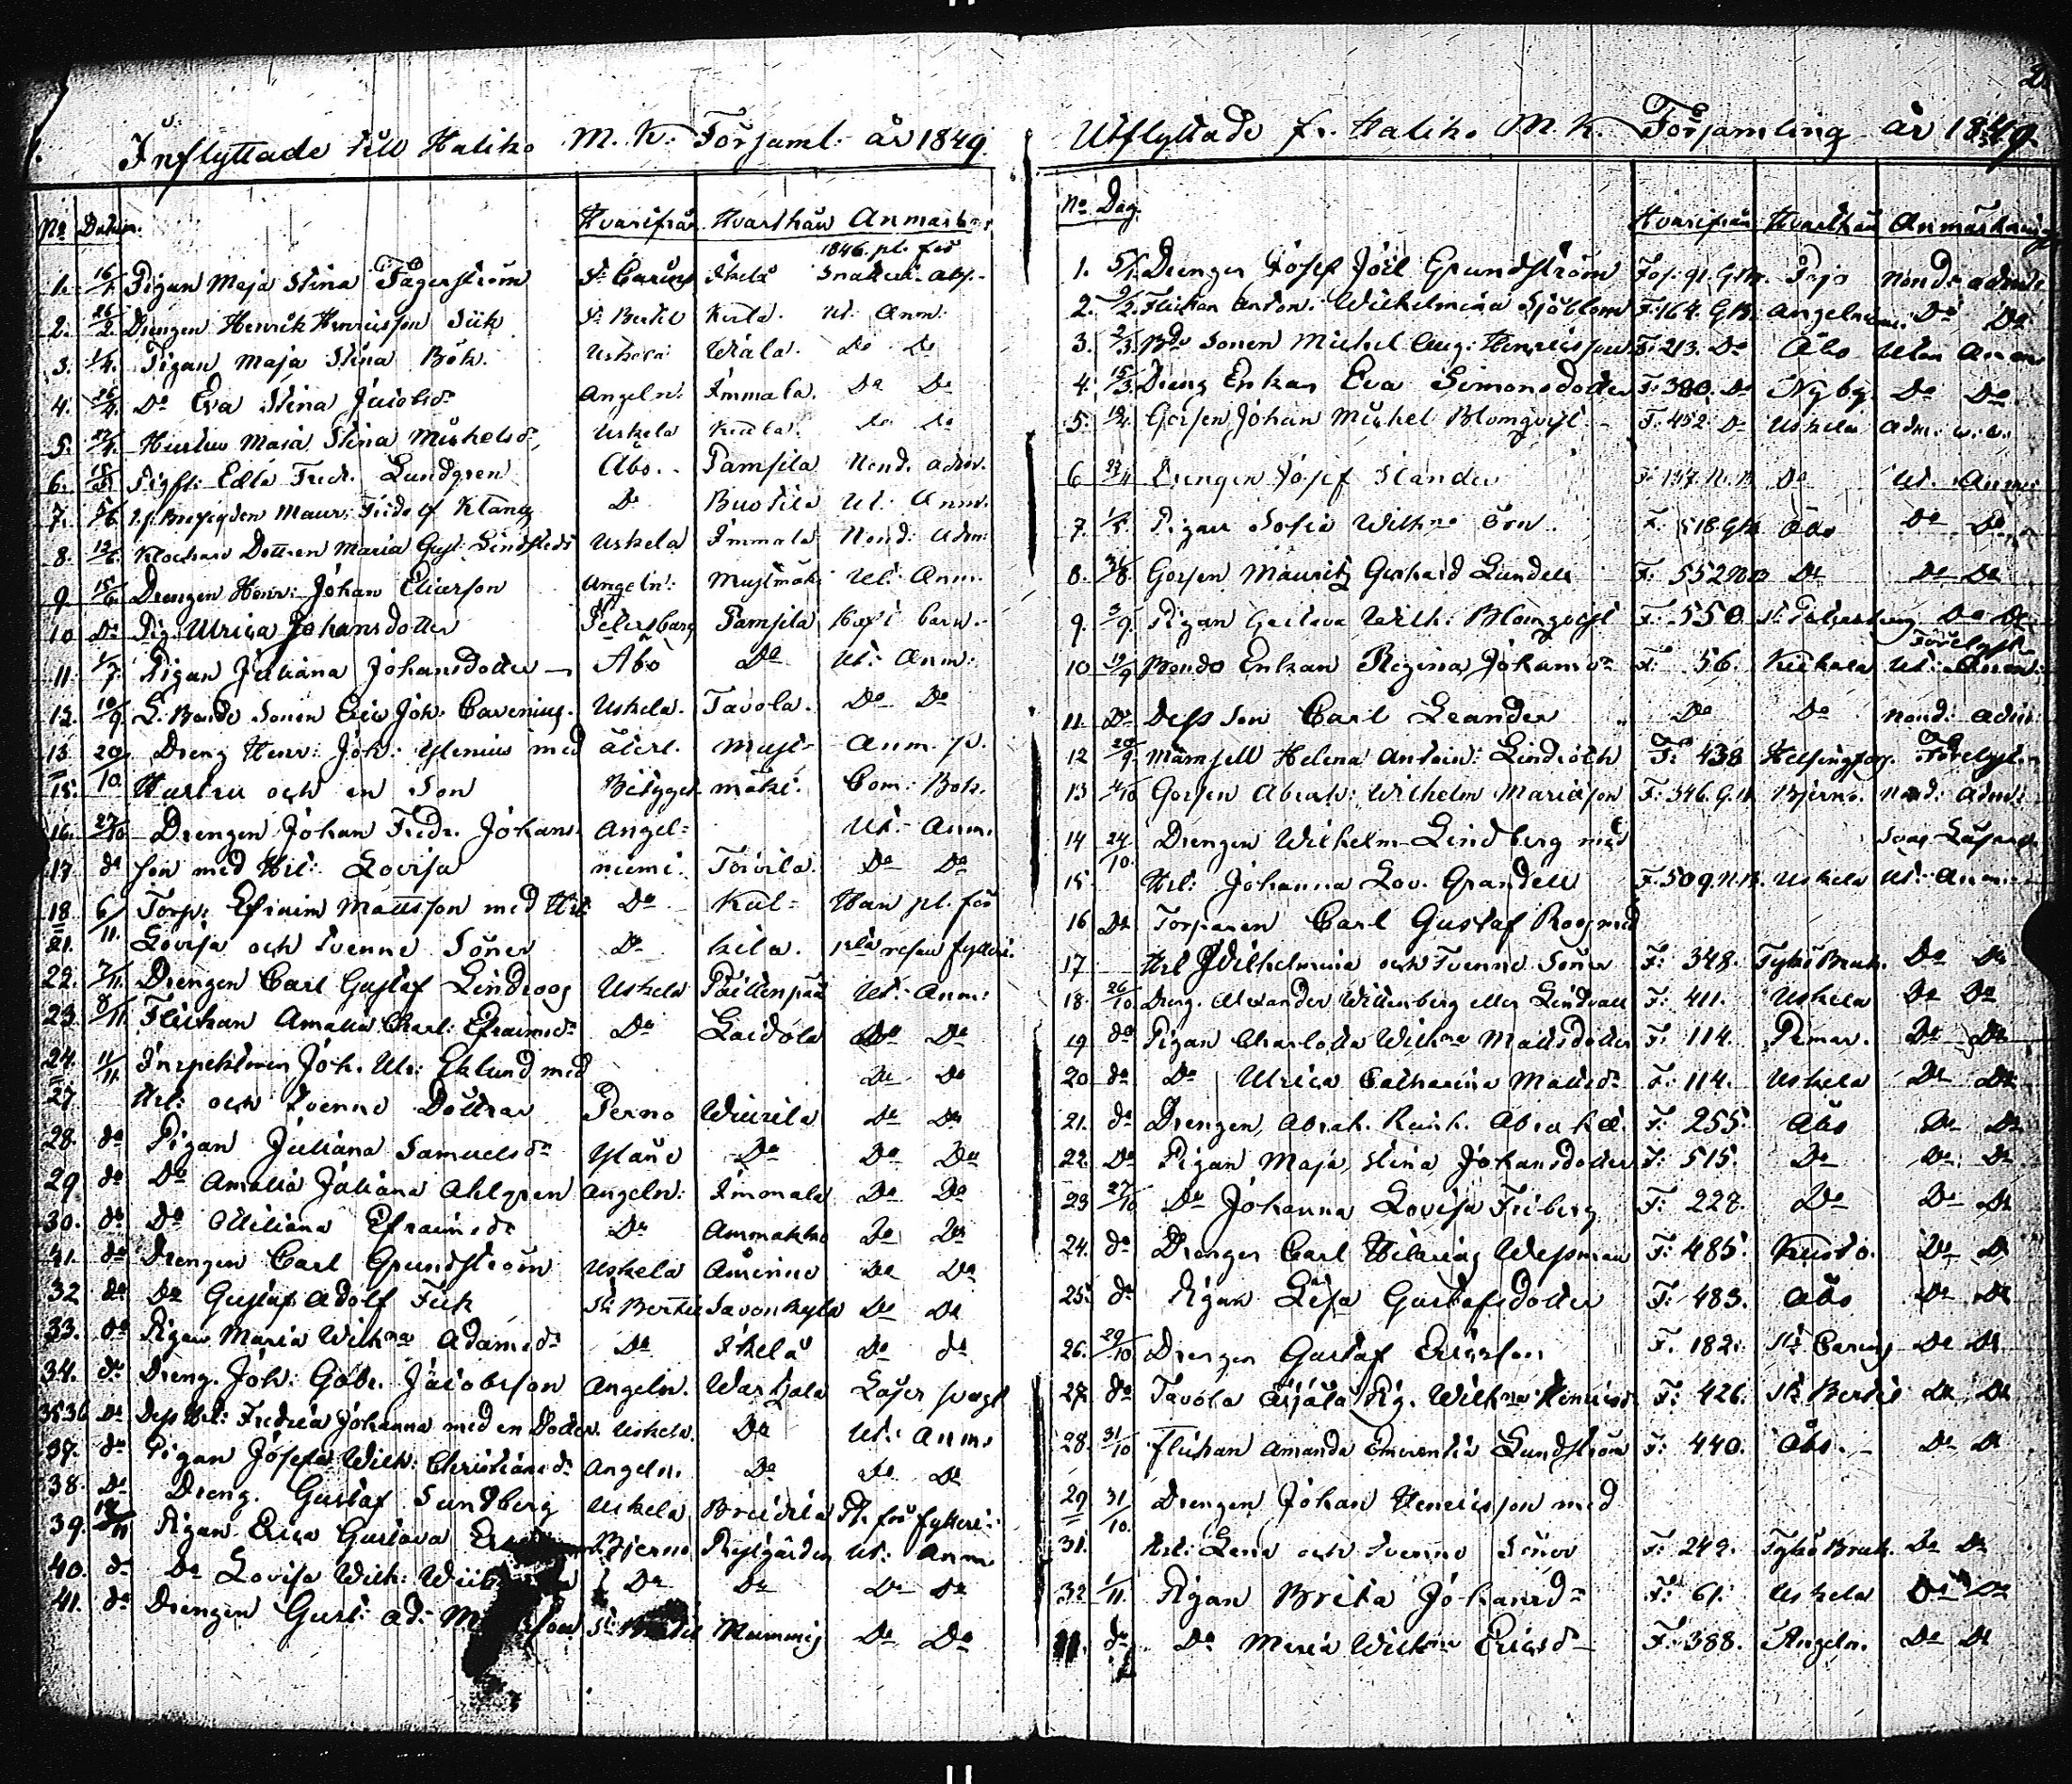 Inflyttade till Haliko M. K. Forsaml: år 1849.
No Datum. Hvarifrån Hvarthän Anmärkn:
1846 pl. för
1. 16/1. Pigan Maja Stina Fagerström St Carins Ihela Snatteri Abs.
2. 26/2. Drengen Henrik Henricsson Siik St Bertil Kirla. Ut. Anm.
3. 1/4. Pigan Maja Stina Böök. Uskela Wiala. Do Do
4. 26/4. Do Eva Stina Jacobsdr Angeln: Immala. Do Do
5. 27/4. Hustru Maja Stina Mickelsdr Uskela Do Do
6. Pigfl: Edla Fredr. Lundgren Åbo. Pamsila Nond. Adm.
7. Maur: Fridolf Klang Do Buotila Ut: Anm.
8. 12/6. Klockare Dottren Maria Gust: Lindstedt Uskela Immala Nond: Adm:
9. 15/6. Drengen Henr: Johan Eliasson Angeln: Mustmäki Ut: Anm.
10 Do Pig: Ulrica Johansdotter Petersburg Pamsila
11. 1/7. Pigan Juliana Johansdotter Åbo Do Ut: Anm:
12. 10/9 L. Bonde Sonen Eric Joh: Carenius. Uskela. Tavola. Do Do
13. 20/10. Dreng Henr: Joh: Ylenius med återl. Must- Anm. p.
15. Hustru och en Son Betyget mäki. Com: Bok.
16. 27/10 Drengen Johan Fredr. Johans- Angel= Ut: Anm.
17. do son med Hst: Lovisa niemi. Toivila. Do Do
18 6/11. Torp: Efraim Mattsson med Hst: Do Kul= Han pl. för
21. Lovisa och tvenne Söner Do kila. resan fylleri.
22. 7/11. Drengen Carl Gustaf Lindroos Uskela Ut: Anm:
23. 8/11 Flickan Amalia Charl: Efraimsdr Do Laidola Do Do
24. 11/11. Inspektoren Joh. Ulr: Eklund med Do Do
27 Hst: och tvenne Döttrar Perno Wiurila Do Do
28. do Pigan Juliana Samuelsdr Yläne Do Do Do
29 do Do Amalia Juliana Ahlgren Angeln: Immala Do Do
30. do Do Ottiliana Efraimsdr Do Ammakko Do Do
41. do Drengen Carl Grundström Uskela Åminne Do Do
32 do Do Gustaf Adolf Fick St: Bertil Savonkylä Do Do
33. do Pigan Maria Wilhna Adamsdr Do Ihela Do do
34. do Dreng. Joh: Gabr. Jacobsson Angeln. Wartsala Läser svagt
35 36 Do Dess Hst: Fredrica Johanna med en Dotter. Uskela. Do Ut: Anm.
37. do Pigan Josefa Wilh: Christiansdr Angeln. Do Do Do
38. Do Dreng. Gustaf Sundberg Uskela Breidila Pl. för fylleri.
39. Pigan Erica Gustava Bjerno Prestgården Ut: Anm
40. do Do Lovisa Wilh: Do Do Do Do
41. do Drengen Gust: Ad: St: Bertil Mummis Do Do
Utflyttade fr. Haliko M. K. Församling år 1849.
No Dag. Hvarifrån Hvarthän Anmärkning
1. 5/1. Drengen Josef Joel Grundström Fol: 91. G.B. Pojo Nond: admit.
2. Flickan Anton: Wilhelmina Sjöblom F: 164. G.B. Angelniemi. Do Do
3. 2/3. Bde Sonen Michel Aug: Henricsson F: 213. Do Åbo Utan Anm
4. 15/3. Dreng Enkan Eva Simonsdotter F: 380. Do Nyby. Do Do.
5. Gossen Johan Michel Blomqvist F: 452. Do Uskela Adm.
6 Drengen Josef Slander F: 147. N.B. Do Ut. Anm
7. 1/5. Pigan Sofia Wilhna Örn. F: 518. G.B. Åbo Do Do
8. 31/8 Gossen Mauritz Gerhard Lundell F: 552 N.B. Do Do Do
9. 3/9. Pigan Gustava Wilh: Blomqvist F: 550 St Petersburg Do Do
Förelyst.
10 19/9 Bonde Enkan Regina Johansdr F: 56. Kiikala Ut: Anm:
11. Do Dess Son Carl Leander Do Do Nond: adm:
12 20/9 Mamsell Helena Antoin: Lindroth F: 438 Helsingfors. Förelyst.
13 Gossen Abrah: Wilhelm Mariasson F: 346. G.B. Bjerno. Nond: Adm:
14 24/10. Drengen Wilhelm Lindberg med Svag Läsare
15 Hst: Johanna Lov. Grandell F: 509. N.B. Uskela Ut: Anm:
16 Do Torparen Carl Gustaf Roos med
17 Hst Wilhelmina och Tvenne Söner F: 348. Tykö Bruk. Do Do
18. 26/10 Dreng. Alexander Wittenberg eller Lindvall F: 411. Uskela Do Do
19 do Pigan Charlotta Wilhna Mattsdotter F: 114. Pemar. Do Do
20 do Do Ulrica Catharina Mattsdr F: 114. Uskela Do Do
21. do Drengen Abrah. F: 255. Åbo Do Do
22. Do Pigan Maja Stina Johansdotter F: 515. Do Do Do
23 27/10 Do Johanna Lovisa Friberg F: 227. Do Do Do
24. do Drengen Carl Wessman F: 485. Kustö. Do Do
25. do Pigan Lisa Gustafsdotter F: 483. Åbo Do Do
26. 29/10 Drengen Gustaf Ericsson F. 182. St: Carins Do Do
27. do Tavola Pig. Wilhna Henricsdr F: 426. St: Bertil Do Do
28. 31/10 Flickan Amanda Emerentia Lundström F: 440. Åbo. Do Do
29 31/10. Drengen Johan Henricsson med
31. Hst: Lena och tvenne Söner F: 249. Tykö Bruk. Do Do
32 1/11. Pigan Brita Johansdr F: 61. Uskela Do Do
do Do Maria Wilhna Ericsdr F: 388. Angeln. Do Do